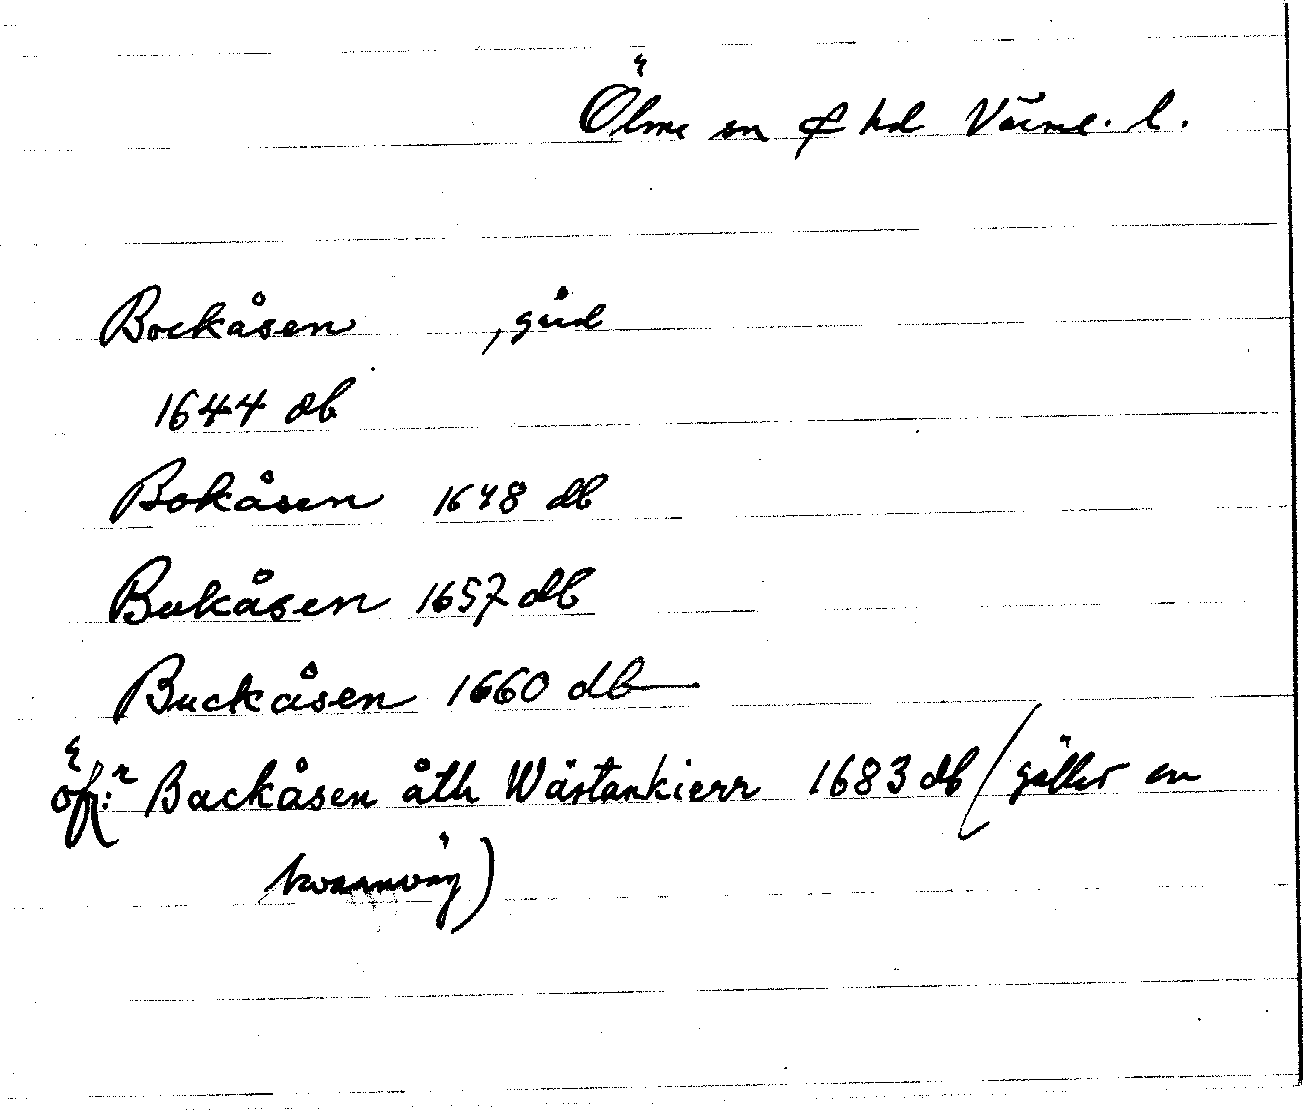 Ölme sn o hd Värml. l.
Bockåsen , gård
1644 db
Bokåsen 1648 db
Bukåsen 1657 db
Buckåsen 1660 db
öfr: Backåsen åth Wästankierr 1683 db (gäller en
kvarnväg)